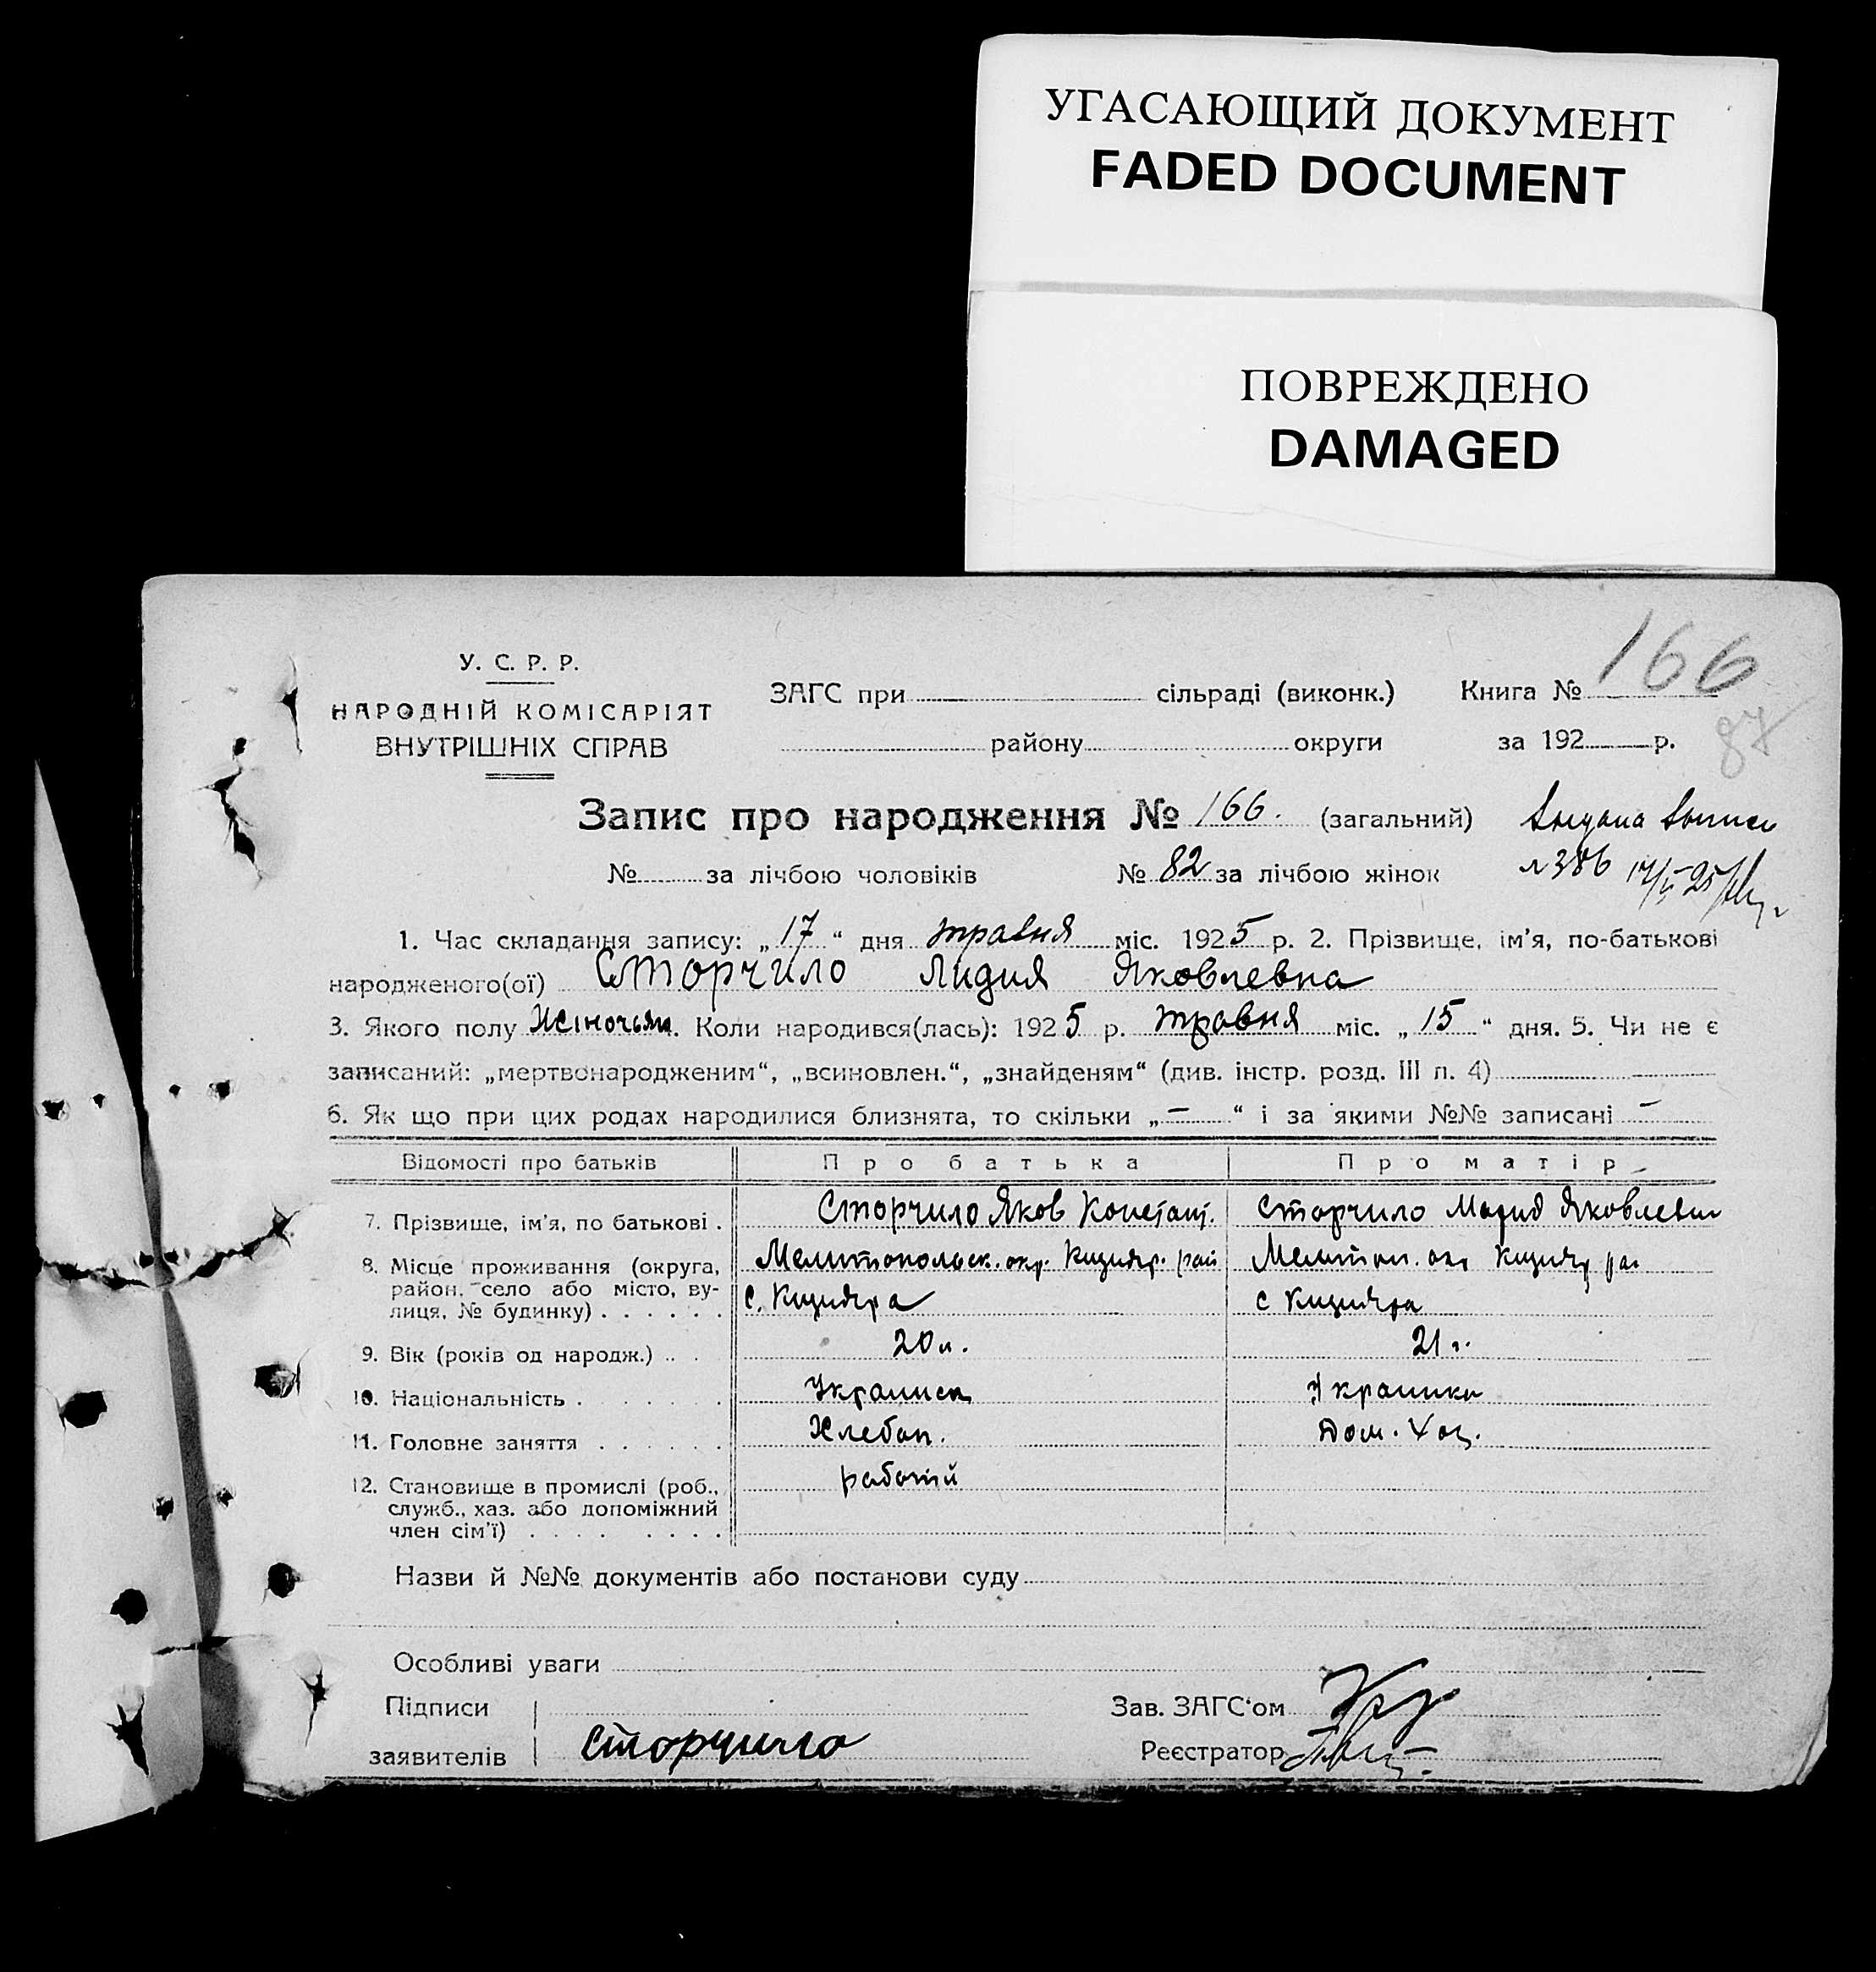 УГАСАЮЩИЙ ДОКУМЕНТ
FADED DOCUMENT
ПОВРЕЖДЕНО
DAMAGED
166
87
У. С. Р. Р.
НАРОДНІЙ КОМІСАРІЯТ
ВНУТРІШНІХ СПРАВ
ЗАГС при сільраді (виконк.) Книга №
району округи за 192 р.
Запис про народження № 166. (загальний)
№ за лічбою чоловіків № 82 за лічбою жінок
№ 386 17/V-25
1. Час складання запису: „17“ дня травня міс. 1925 р. 2. Прізвище, ім'я, по-батькові
народженого(ої) Сторчило Лидия Яковлевна
3. Якого полу . Коли народився(лась): 1925 р. травня міс. „15“ дня. 5. Чи не є
записаний: „мертвонародженим“, „всиновлен.“, „знайденям“ (див. інстр. розд. III п. 4)
6. Як що при цих родах народилися близнята, то скільки „—“ і за якими №№ записані —
Відомості про батьків Про батька Про матір
7. Прізвище, ім'я, по батькові . Сторчило Яков Констант. Сторчило Мария Яковлевн
8. Місце проживання (округа, район, село або місто, вулиця, № будинку) . . . . . .
Мелитопольск. окр. Кизияр. рай Мелитоп. Кизияр
с. Кизияра с Кизияра
9. Вік (років од народж.) . . . 20 л. 21 г.
10. Національність . . . . . . Украинец Украинка
11. Головне заняття . . . . . . Хлебоп. Дом. Хоз.
12. Становище в промислі (роб., служб., хаз. або допоміжний член сім'ї) . . . . . . . .
Назви й №№ документів або постанови суду
Особливі уваги
Підписи
заявителів Сторчило
Зав. ЗАГС'ом
Реєстратор